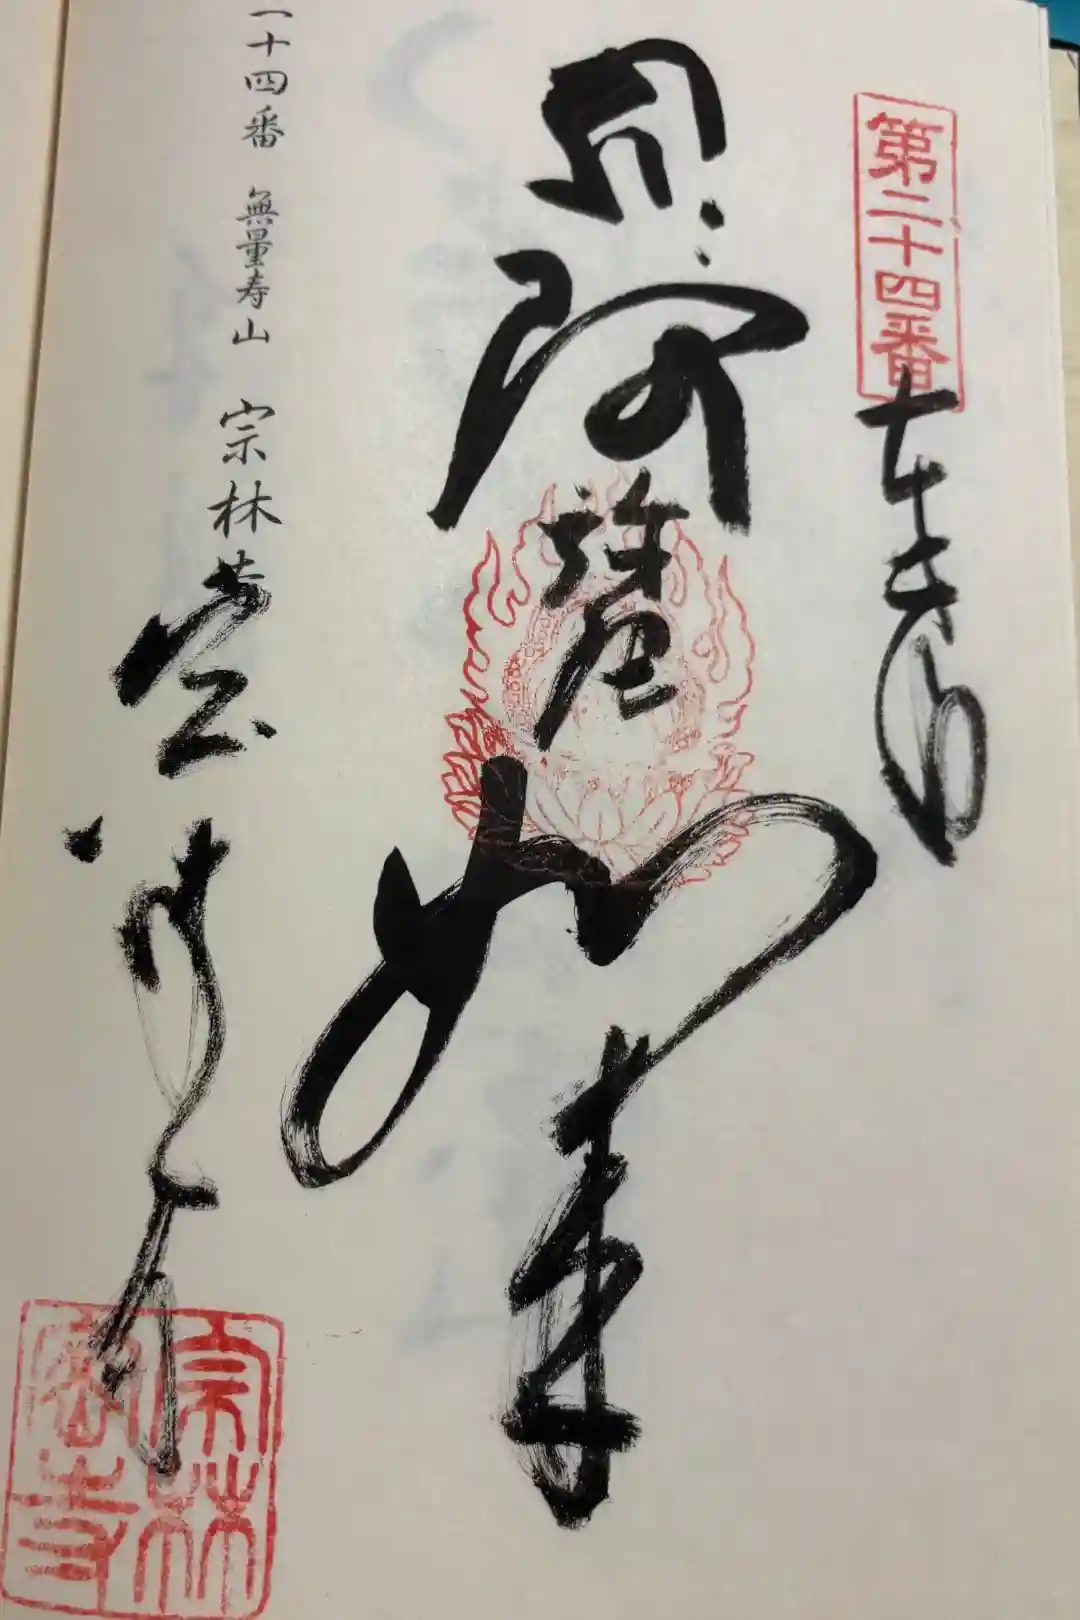 第二十四番
奉拝
阿弥陀如来
二十四番 無量寿山 宗林
宗林
密寺